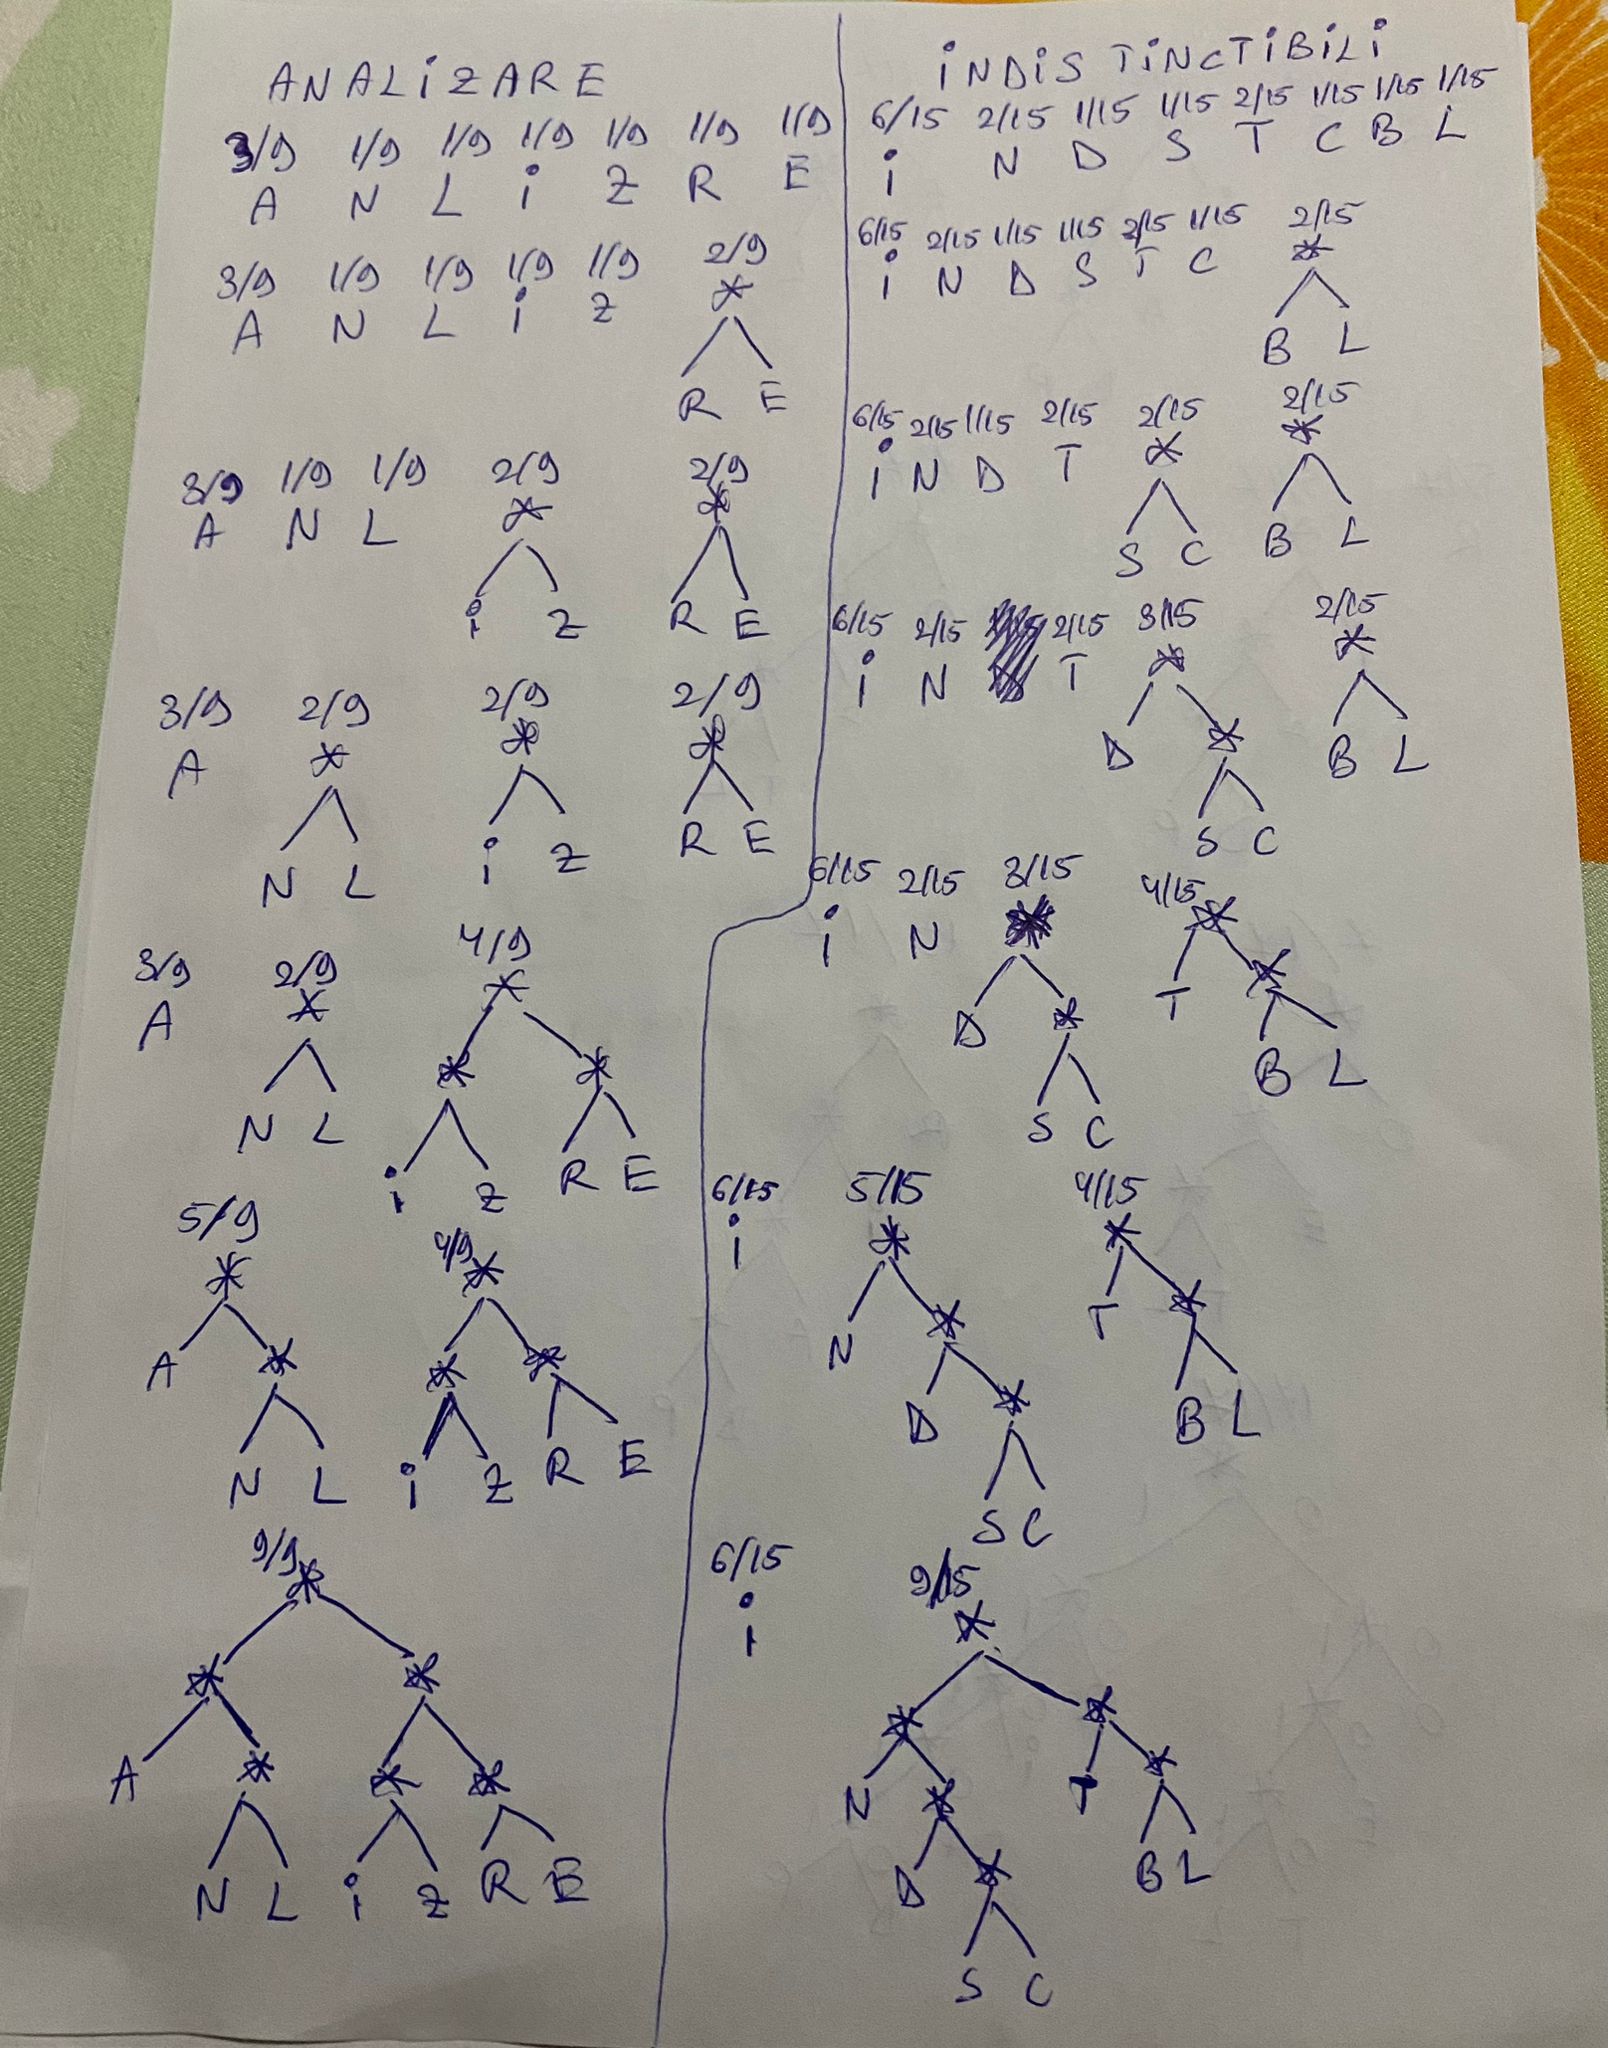 ANALiZARE
3/9 1/9 1/9 1/9 1/9 1/9 1/9
A N L i Z R E
3/9 1/9 1/9 1/9 1/9 2/9
A N L i Z *
R E
3/9 1/9 1/9 2/9 2/9
A N L * *
i Z R E
3/9 2/9 2/9 2/9
A * * *
N L i Z R E
3/9 2/9 4/9
A * *
* *
N L i Z R E
5/9 4/9
* *
A * * *
N L i Z R E
9/9
*
* *
A * * *
N L i Z R E
iNDiSTiNCTiBiLi
6/15 2/15 1/15 1/15 2/15 1/15 1/15 1/15
i N D S T C B L
6/15 2/15 1/15 1/15 2/15 1/15 2/15
i N D S T C *
B L
6/15 2/15 1/15 2/15 2/15 2/15
i N D T * *
S C B L
6/15 2/15 2/15 3/15 2/15
i N T * *
D * B L
S C
6/15 2/15 3/15 4/15
i N * *
D * T *
S C B L
6/15 5/15 4/15
i * *
N * T *
D * B L
S C
6/15 9/15
i *
* *
N * T *
D * B L
S C